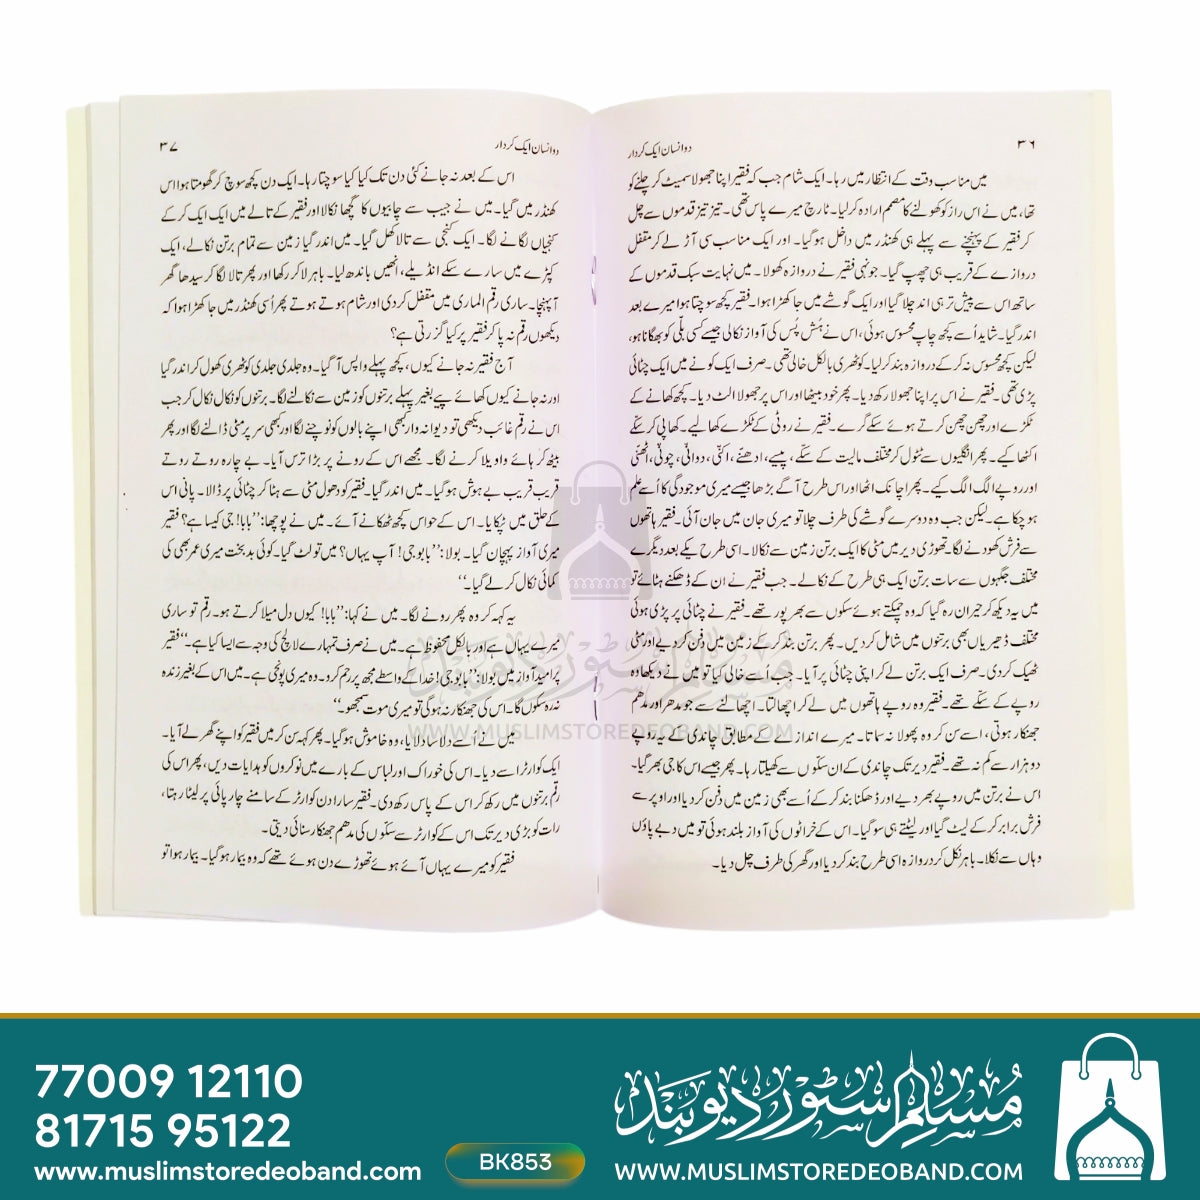 ۳۶
دو انسان ایک کردار
میں مناسب وقت کے انتظار میں رہا۔ ایک شام جب کہ فقیر اپنا جھولا سمیٹ کر چلنے کو
تھا، میں نے اس راز کو کھولنے کا مصمم ارادہ کرلیا۔ ٹارچ میرے پاس تھی۔ تیز تیز قدموں سے چل
کر فقیر کے پہنچنے سے پہلے ہی کھنڈر میں داخل ہوگیا۔ اور ایک مناسب سی آڑ لے کر مقفل
دروازے کے قریب ہی چھپ گیا۔ جونہی فقیر نے دروازہ کھولا۔ میں نہایت سبک قدموں کے
ساتھ اس سے پیش تر ہی اندر چلا گیا اور ایک گوشے میں جا کھڑا ہوا۔ فقیر کچھ سوچتا ہوا میرے بعد
اندر گیا۔ شاید اُسے کچھ چاپ محسوس ہوئی، اس نے ہش پُس کی آواز نکالی جیسے کسی بلّی کو بھگانا ہو،
لیکن کچھ محسوس نہ کر کے دروازہ بند کرلیا۔ کوٹھری بالکل خالی تھی۔ صرف ایک کونے میں ایک چٹائی
پڑی تھی۔ فقیر نے اس پر اپنا جھولا رکھ دیا۔ پھر خود بیٹھا اور اس پر جھولا الٹ دیا۔ کچھ کھانے کے
ٹکڑے اور چھن چھن کرتے ہوئے سکے گرے۔ فقیر نے روٹی کے ٹکڑے کھا لیے۔ کھا پی کر سکّے
اکٹھا کیے۔ پھر انگلیوں سے ٹٹول کر مختلف مالیت کے سکّے، پیسے، ادھنّے، اکنّی، دوانّی، چونّی، اٹھنّی
اور روپے الگ الگ کیے۔ پھر اچانک اٹھا اور اس طرح آگے بڑھا جیسے میری موجودگی کا اُسے علم
ہو چکا ہے۔ لیکن جب وہ دوسرے گوشے کی طرف چلا تو میری جان میں جان آئی۔ فقیر ہاتھوں
سے فرش کھودنے لگا۔ تھوڑی دیر میں مٹی کا ایک برتن زمین سے نکالا۔ اسی طرح یکے بعد دیگرے
مختلف جگہوں سے سات برتن ایک ہی طرح کے نکالے۔ جب فقیر نے ان کے ڈھکنے ہٹائے تو
میں یہ دیکھ کر حیران رہ گیا کہ وہ چمکتے ہوئے سکوں سے بھرپور تھے۔ فقیر نے چٹائی پر پڑی ہوئی
مختلف ڈھیریاں بھی برتنوں میں شامل کردیں۔ پھر برتن بند کر کے زمین میں دفن کر دیے اور مٹی
ٹھیک کردی۔ صرف ایک برتن لے کر اپنی چٹائی پر آیا۔ جب اسے خالی کیا تو میں نے دیکھا وہ
روپے کے سکّے تھے۔ فقیر وہ روپے ہاتھوں میں لے کر اچھالتا۔ اچھالنے سے جو مدھر اور مدھم
جھنکار ہوتی، اسے سن کر وہ پھولا نہ سماتا۔ میرے اندازے کے مطابق چاندی کے یہ روپے
دو ہزار سے کم نہ تھے۔ فقیر دیر تک چاندی کے ان سکّوں سے کھیلتا رہا۔ پھر جیسے اس کا جی بھر گیا۔
اس نے برتن میں روپے بھر دیے اور ڈھکنا بند کر کے اُسے بھی زمین میں دفن کر دیا اور اوپر سے
فرش برابر کر کے لیٹ گیا اور لیٹتے ہی سو گیا۔ اس کے خراٹوں کی آواز بلند ہوئی تو میں دبے پاؤں
وہاں سے نکلا۔ باہر نکل کر دروازہ اسی طرح بند کر دیا اور گھر کی طرف چل دیا۔
دو انسان ایک کردار
۳۷
اس کے بعد نہ جانے کئی دن تک کیا کیا سوچتا رہا۔ ایک دن کچھ سوچ کر گھومتا ہوا اس
کھنڈر میں گیا۔ میں نے جیب سے چابیوں کا گچھا نکالا اور فقیر کے تالے میں ایک ایک کر کے
کنجیاں لگانے لگا۔ ایک کنجی سے تالا کھل گیا۔ میں اندر گیا زمین سے تمام برتن نکالے، ایک
کپڑے میں سارے سکے انڈیلے، انھیں باندھ لیا۔ باہر لاکر رکھا اور پھر تالا لگا کر سیدھا گھر
آپہنچا۔ ساری رقم الماری میں مقفل کردی اور شام ہوتے ہوتے پھر اُسی کھنڈر میں جا کھڑا ہوا کہ
دیکھوں رقم نہ پا کر فقیر پر کیا گزرتی ہے؟
آج فقیر نہ جانے کیوں، کچھ پہلے واپس آگیا۔ وہ جلدی جلدی کوٹھری کھول کر اندر گیا
اور نہ جانے کیوں کھائے پیے بغیر پہلے برتنوں کو زمین سے نکالنے لگا۔ برتنوں کو نکال نکال کر جب
اس نے رقم غائب دیکھی تو دیوانہ وار کبھی اپنے بالوں کو نوچنے لگا اور کبھی سر پر مٹی ڈالنے لگا اور پھر
بیٹھ کر ہائے واویلا کرنے لگا۔ مجھے اس کے رونے پر بڑا ترس آیا۔ بے چارہ روتے روتے
قریب قریب بے ہوش ہوگیا۔ میں اندر گیا۔ فقیر کو دھول مٹی سے ہٹا کر چٹائی پر ڈالا۔ پانی اس
کے حلق میں ٹپکایا۔ اس کے حواس کچھ ٹھکانے آئے۔ میں نے پوچھا: ’’بابا! جی کیسا ہے؟ فقیر
میری آواز پہچان گیا۔ بولا: ’’بابو جی! آپ یہاں؟ میں تو لٹ گیا۔ کوئی بدبخت میری عمر بھر کی
کمائی نکال کر لے گیا۔‘‘
یہ کہہ کر وہ پھر رونے لگا۔ میں نے کہا: ’’بابا! کیوں دل میلا کرتے ہو۔ رقم تو ساری
میرے یہاں ہے اور بالکل محفوظ ہے۔ میں نے صرف تمہارے لالچ کی وجہ سے ایسا کیا ہے‘‘ فقیر
پرامید آواز میں بولا: ’’بابو جی! خدا کے واسطے مجھ پر رحم کرو۔ وہ میری پونجی ہے۔ میں اس کے بغیر زندہ
نہ رہ سکوں گا۔ اس کی جھنکار نہ ہوگی تو میری موت سمجھو۔‘‘
میں نے اُسے دلاسا دلایا، وہ خاموش ہوگیا۔ پھر کہہ سن کر میں فقیر کو اپنے گھر لے آیا۔
ایک کوارٹر اسے دیا۔ اس کی خوراک اور لباس کے بارے میں نوکروں کو ہدایات دیں، پھر اس کی
رقم برتنوں میں رکھ کر اس کے پاس رکھ دی۔ فقیر سارا دن کوارٹر کے سامنے چارپائی پر لیٹا رہتا،
رات کو بڑی دیر تک اس کے کوارٹر سے سکّوں کی مدھم جھنکار سنائی دیتی۔
فقیر کو میرے یہاں آئے ہوئے تھوڑے دن ہوئے تھے کہ وہ بیمار ہو گیا۔ بیمار ہوا تو
مسلم سٹور دیوبند
WWW.MUSLIMSTOREDEOBAND.COM
77009 12110
81715 95122
www.muslimstoredeoband.com
BK853
مسلم سٹور دیوبند
WWW.MUSLIMSTOREDEOBAND.COM